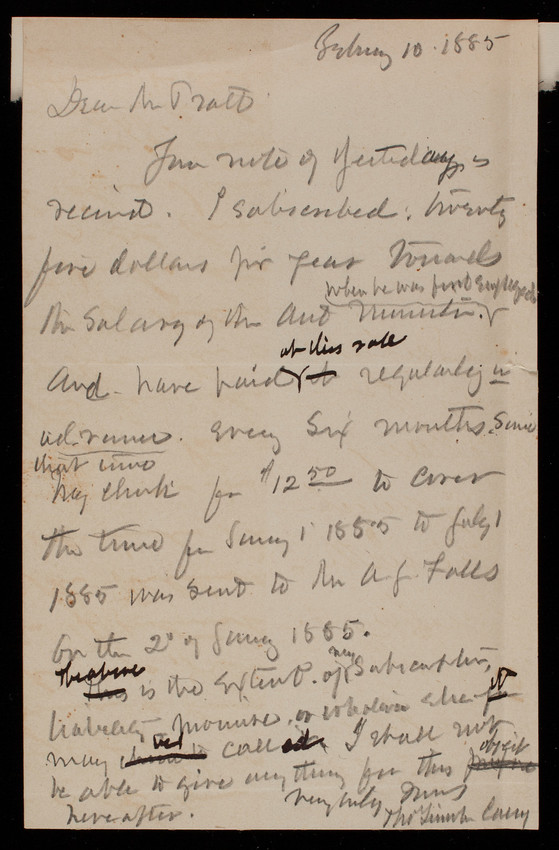 Febuy 10. 1885
Dear Mr Pratt
Your note of yesterday is
recevd. I subscribed, twenty
five dollars per year towards
when he was first employed
the salary of the Ast Minister.
at this rate
And have paid it regularly in
advance. every six months. Since
that time
My check for $12 50 to cover
the time fm Janny 1 1885 to July 1
1885 was sent to Mr A. J. Falls
On the 2d of Janny 1885.
The above my
This is the extent of Subscription,
liability, promise, or whatever else it
may be called. I shall not
object
be able to give anything for this purpose
hereafter. Very truly Yours
Thos Lincoln Casey